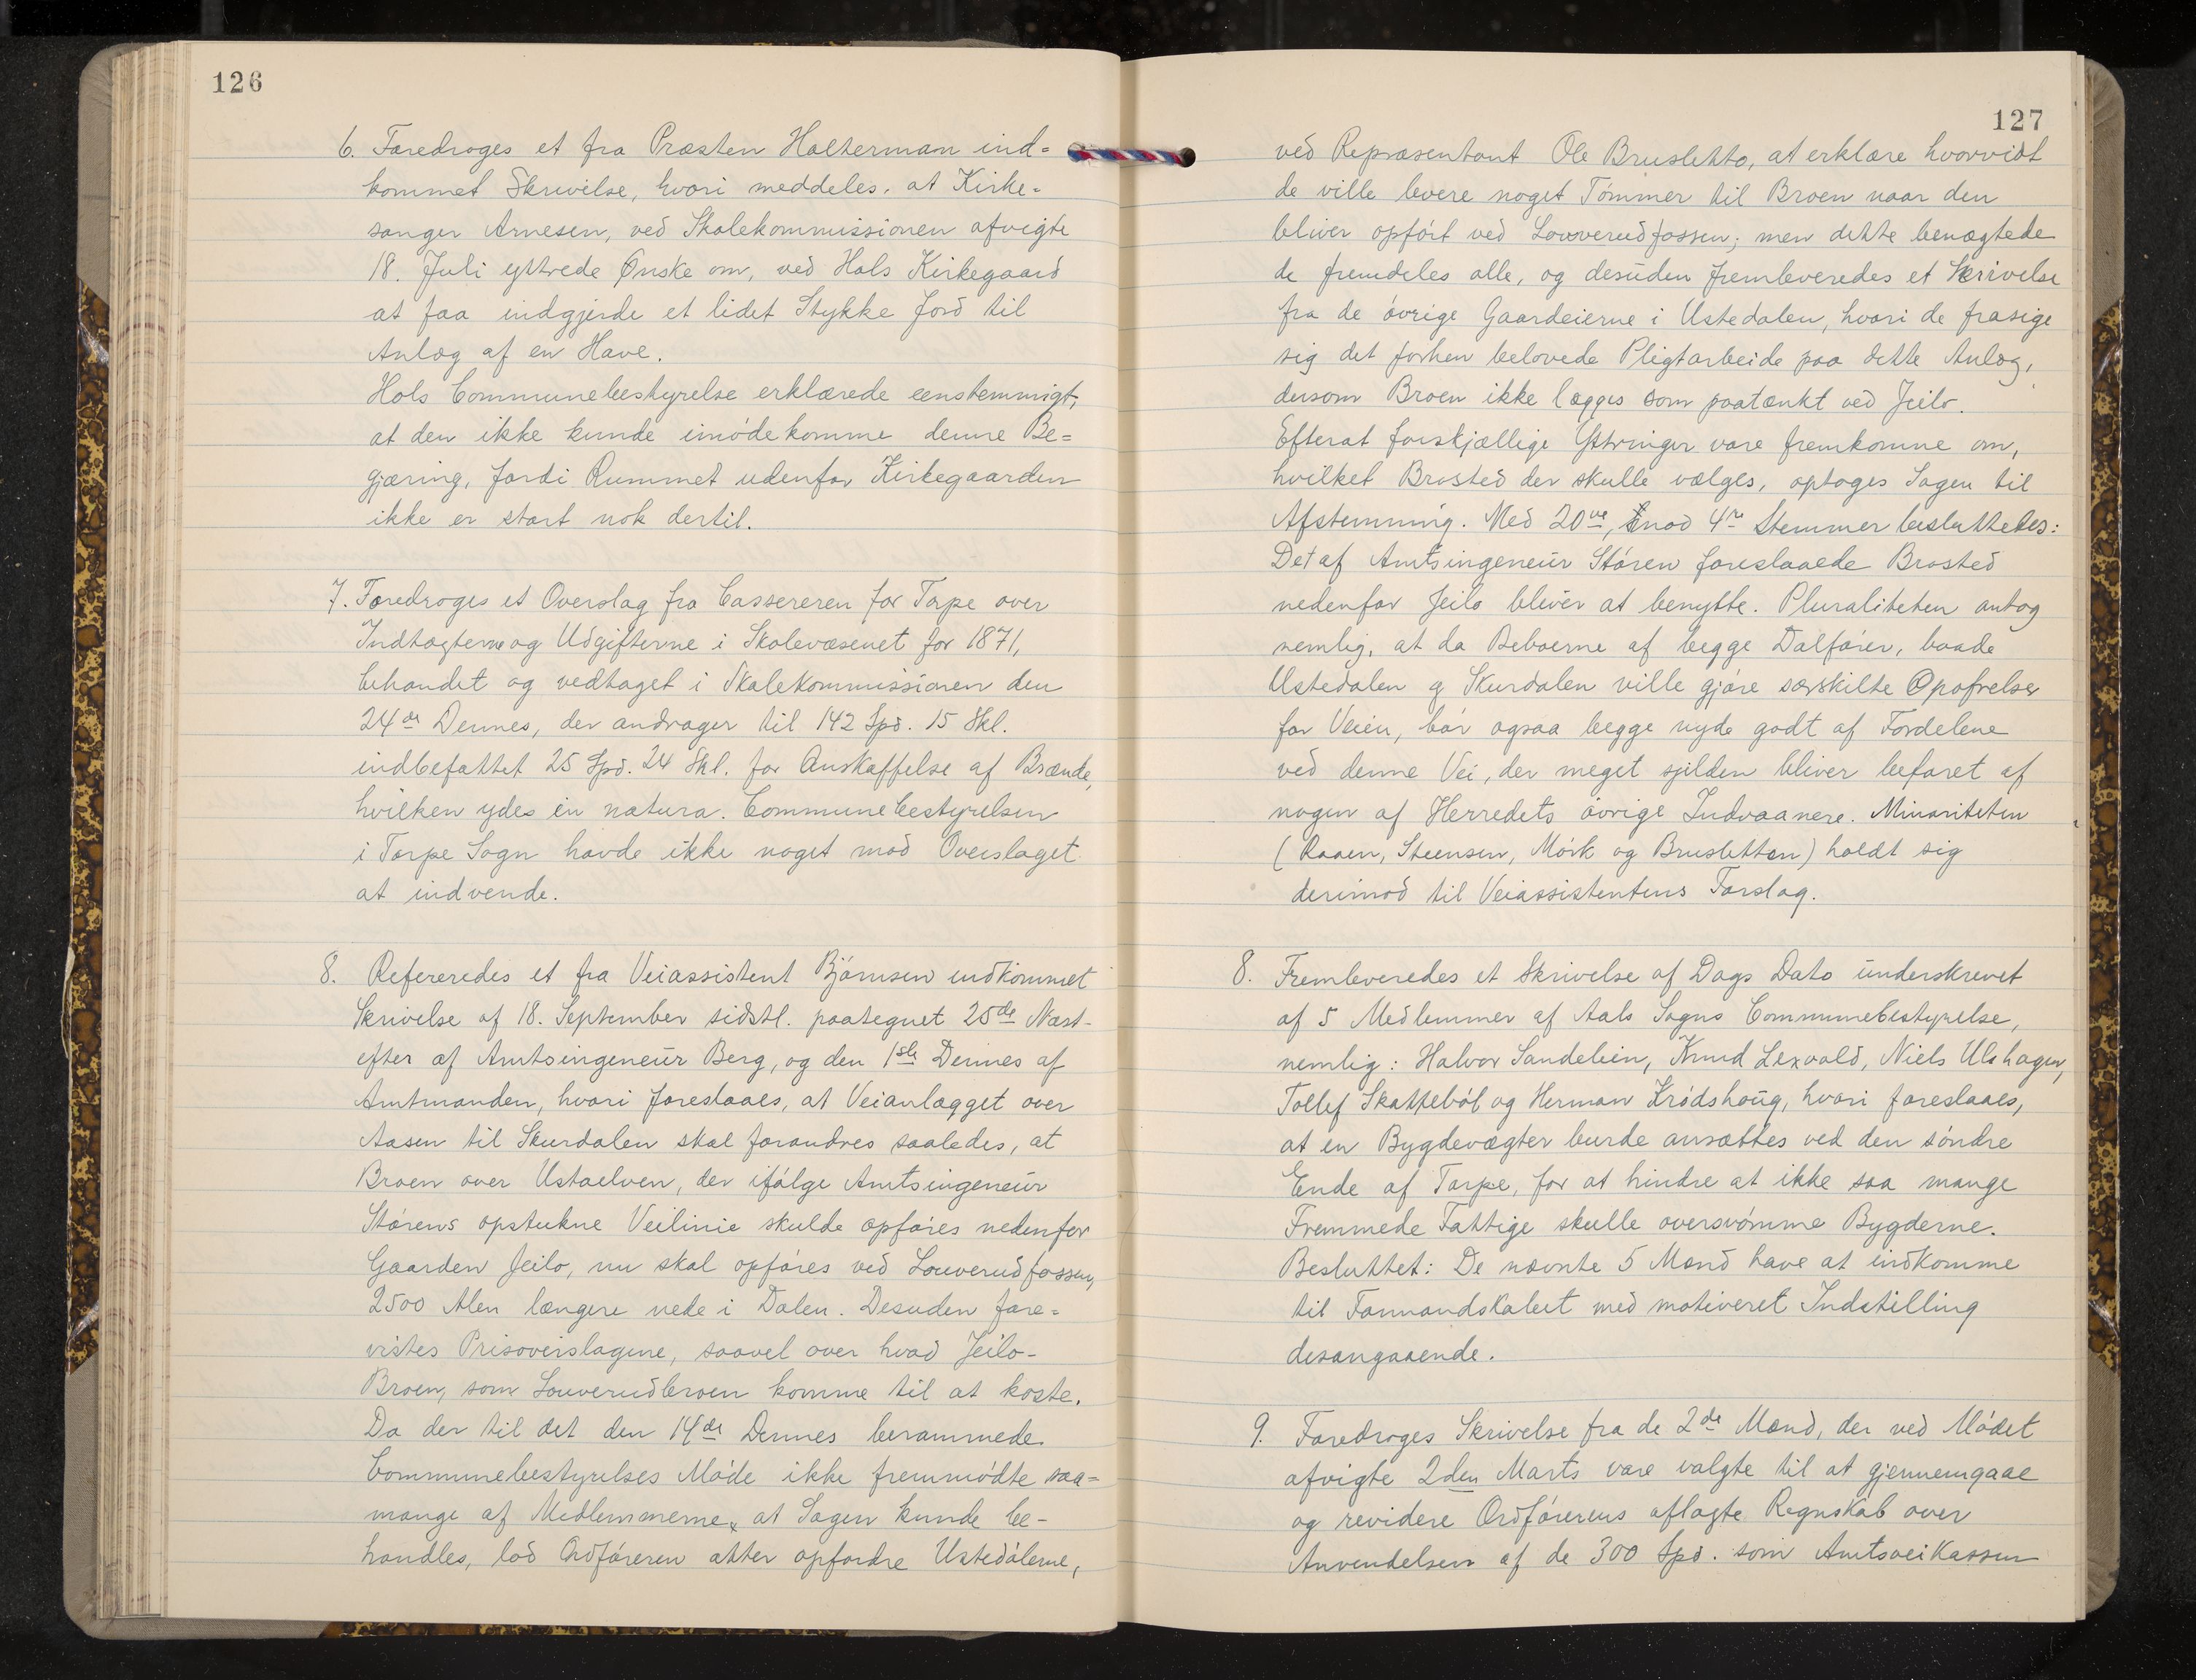 126
6. Foredroges et fra Præsten Halterman ind=
kommet Skrivelse, hvori meddeles, at Kirke=
sanger Arnesen, ved Skolekommissionen afvigte
18. Juli yttrede Ønske om, ved Hols Kirkegaard
at faa indgjerde et lidet Stykke Jord til
Anlæg af en Have.
Hols Communebestyrelse erklærede eenstemmigt,
at den ikke kunde imødekomme denne Be=
gjæring, fordi Rummet udenfor Kirkegaarden
ikke er stort nok dertil.
7. Foredroges et Overslag fra Cassereren for Torpe over
Indtægterne og Udgifterne i Skolevæsenet for 1871,
behandlet og vedtaget i Skolekommissionen den
24de Dennes, der andrager til 142 Spd. 15 Skl.
indbefattet 25 Spd. 24 Skl. for Anskaffelse af Brænde,
hvilken ydes in natura. Communebestyrelsen
i Torpe Sogn havde ikke noget mod Overslaget
at indvende.
8. Refereredes et fra Veiassistent Bjørnsen indkommet
Skrivelse af 18. September sidstl. paategnet 25de Næst-
efter af Amtsingeneur Berg, og den 1ste Dennes af
Amtmanden, hvori foreslaaes, at Veianlægget over
Aasen til Skurdalen skal forandres saaledes, at
Broen over Ustaelven, der ifølge Amtsingeneur
Størens opstukne Veilinie skulde opføres nedenfor
Gaarden Jeilo, nu skal opføres ved Louverudfossen,
2500 Alen længere nede i Dalen. Desuden fore=
vistes Prisoverslagene, saavel over hvad Jeilo-
Broen, som Louverudbroen komme til at koste.
Da der til det den 14de Dennes berammede
Communebestyrelses Møde ikke fremmødte saa=
mange af Medlemmerne, at Sagen kunde be-
handles, lod Ordføreren atter opfordre Ustedølerne,
127
ved Repræsentant Ole Brusletto, at erklære hvorvidt
de ville levere noget Tømmer til Broen naar den
bliver opført ved Louverudfossen; men dette benægtede
de fremdeles alle, og desuden fremleveredes et Skrivelse
fra de øvrige Gaardeierne i Ustedalen, hvori de frasige
sig det forhen belovede Pligtarbeide paa dette Anlæg,
dersom Broen ikke lægges som paatænkt ved Jeilo.
Efterat forskjællige Yttringer vare fremkomne om,
hvilket Brosted der skulle vælges, optoges Sagen til
Afstemning. Med 20ve, imod 4re Stemmer besluttedes:
Det af Amtsingeneur Støren foreslaaede Brosted
nedenfor Jeilo bliver at benytte. Pluraliteten antog
nemlig, at da Beboerne af begge Dalfører, baade
Ustedalen og Skurdalen ville gjøre særskilte Opofrelser
for Veien, bør ogsaa begge nyde godt af Fordelene
ved denne Vei, der meget sjilden bliver befaret af
nogen af Herredets øvrige Indvaanere. Minoriteten
(Raaen, Steensen, Mørk og Brusletten) holdt sig
derimod til Veiassistentens Forslag.
8. Fremleveredes et Skrivelse af Dags Dato underskrevet
af 5 Medlemmer af Aals Sogns Communebestyrelse,
nemlig: Halvor Sandelien, Knud Lexvold, Niels Ulshagen,
Tollef Skattebøl og Herman Krødshoug, hvori foreslaaes,
at en Bygdevægter burde ansættes ved den søndre
Ende af Torpe, for at hindre at ikke saa mange
Fremmede Fattige skulle oversvømme Bygderne.
Besluttet: De nævnte 5 Mænd have at indkomme
til Formandskabet med motiveret Indstilling
desangaaende.
9. Foredroges Skrivelse fra de 2de Mænd, der ved Mødet
afvigte 2den Marts vare valgte til at gjennemgaae
og revidere Ordførerens aflagte Regnskab over
Anvendelsen af de 300 Spd. som Amtsveikassen